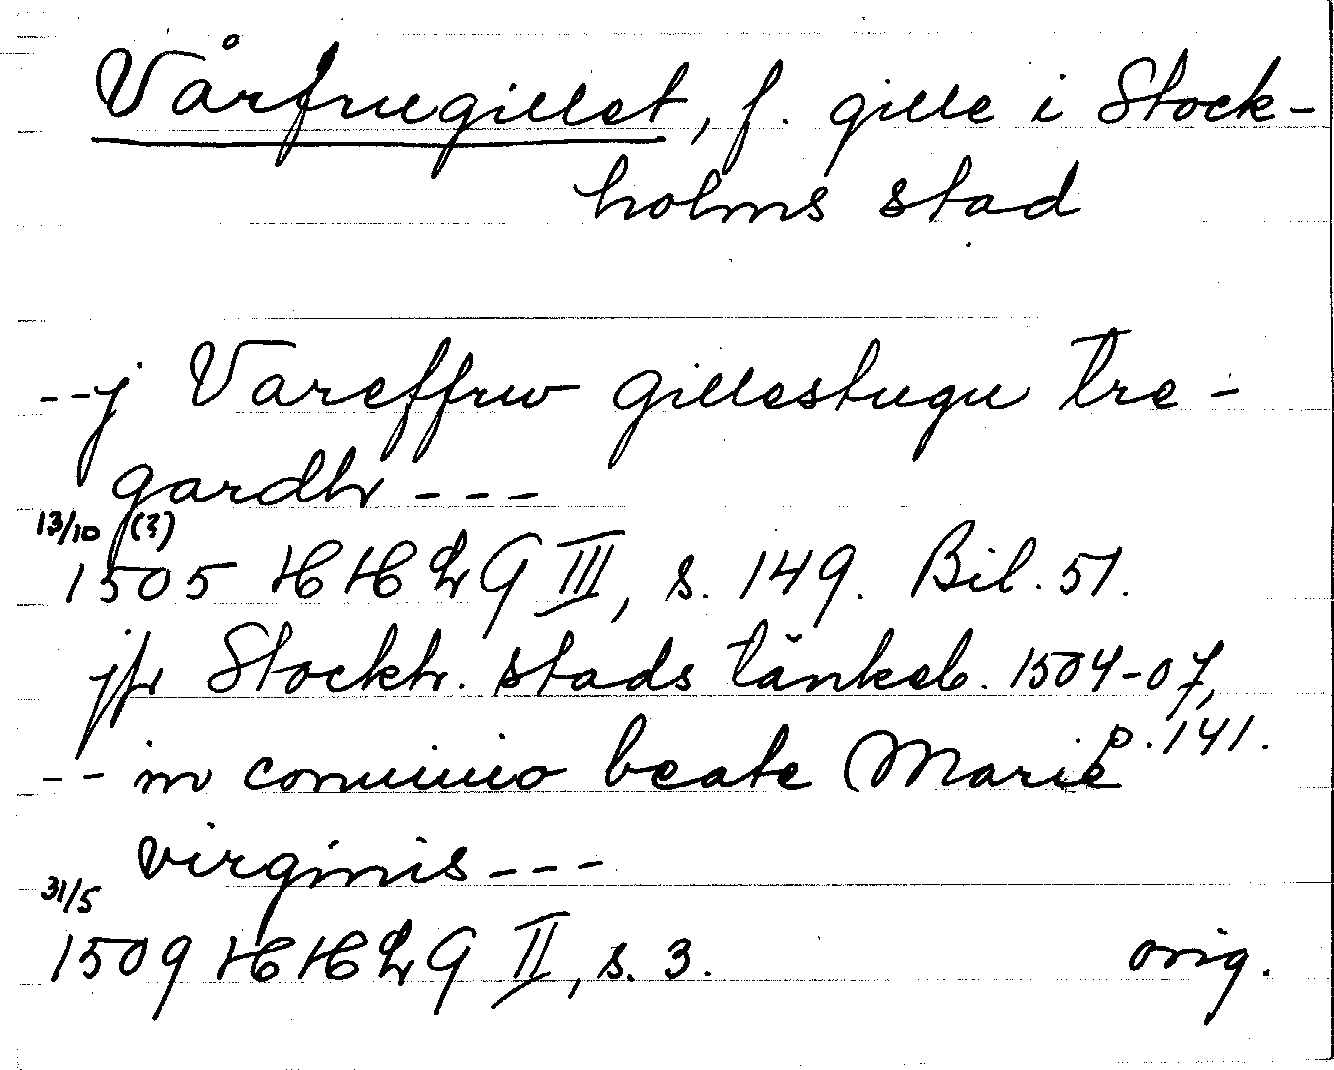 Vårfruegillet, f. gille i Stock-
holms stad
--j Vareffrw gillestugu tre-
gardh ---
13/10 (?)
1505 HHLG III, s. 149. Bil. 51.
jfr Stockh. stads tänkeb. 1504-07,
p. 141.
-- in conuiuio beate Marie
virginis ---
31/5
1509 HHLG II, s. 3. orig.